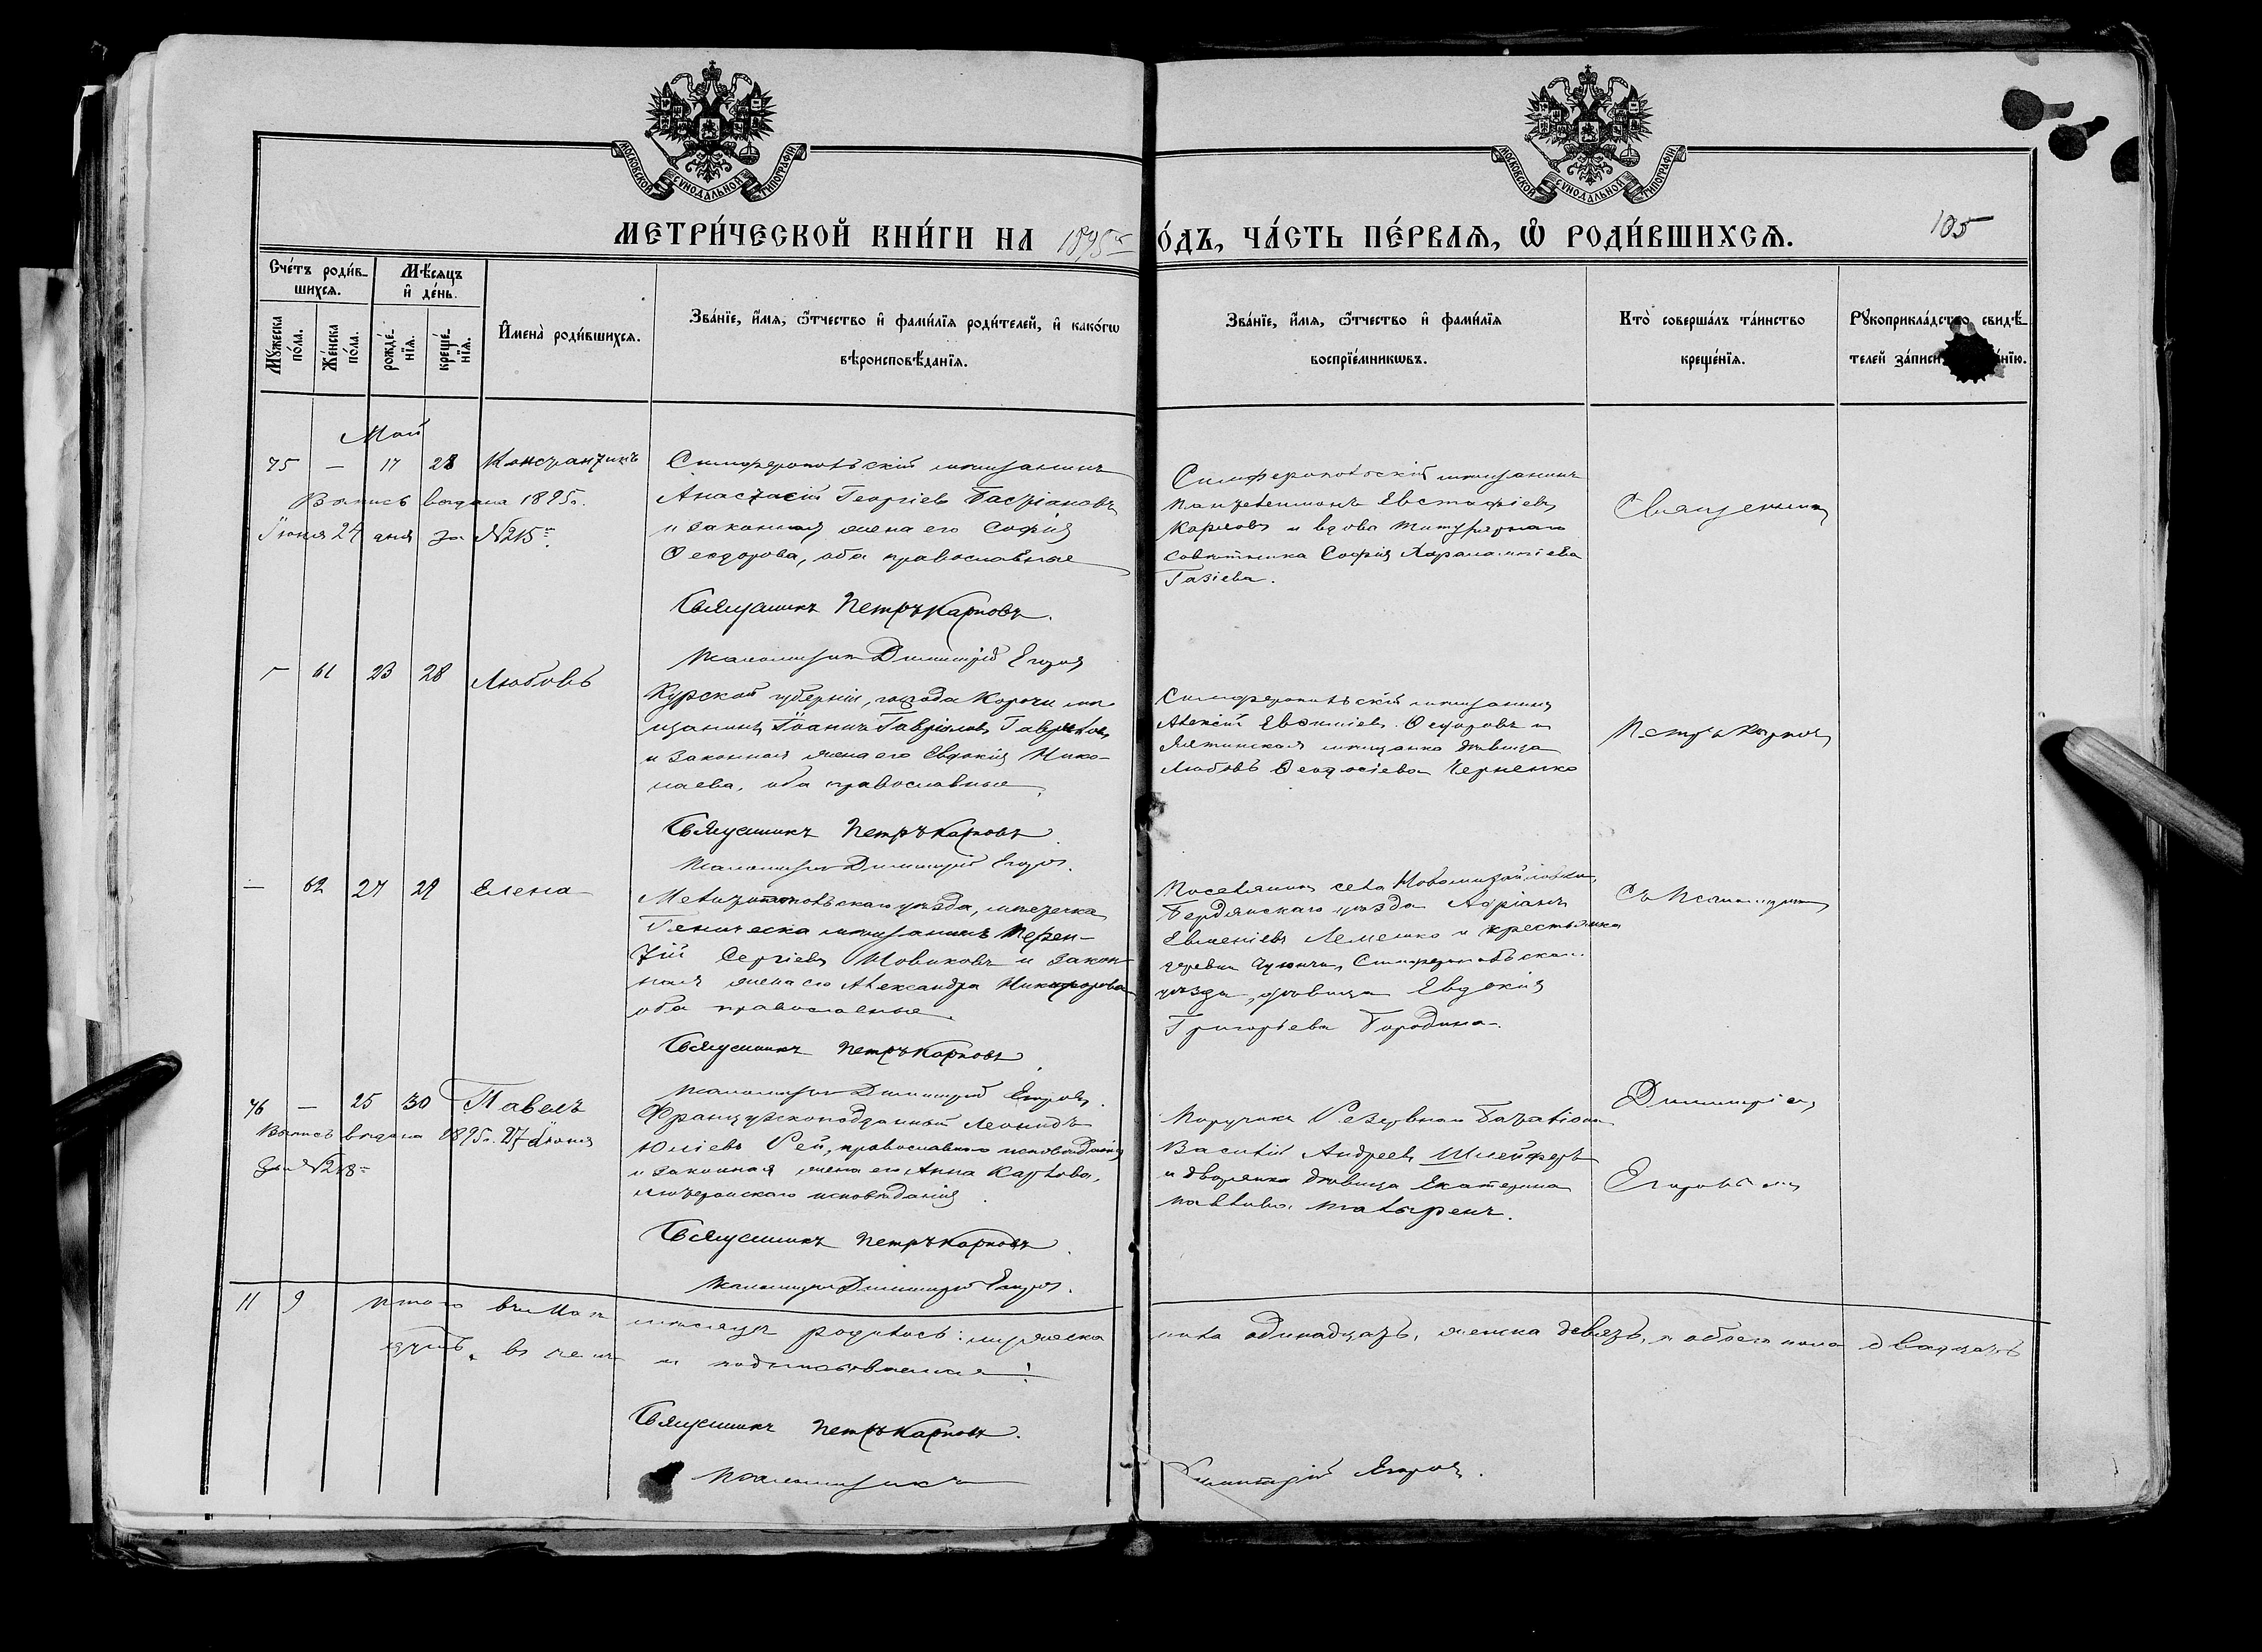 МОСКОВСКОЙ СѴНОДАЛЬНОЙ ТИПОГРАФІИ
МОСКОВСКОЙ СѴНОДАЛЬНОЙ ТИПОГРАФІИ
МЕТРИ́ЧЕСКОЙ КНИ́ГИ НА 1895 й
О́ДЪ, ЧА́СТЬ ПЕ́РВАѦ, Ѽ РОДИ́ВШИХСѦ.
105
Сче́тъ роди́вшихсѧ.
Мѣ́сѧцъ и҆ де́нь.
Мꙋ́жеска по́ла.
Же́нска по́ла.
рожде́нїѧ.
креще́нїѧ.
И҆мена̀ роди́вшихсѧ.
Зва́нїе, и҆́мѧ, ѻ҆́тчество и҆ фами́лїѧ роди́телей, и҆ како́гѡ
вѣроисповѣ́данїѧ.
Зва́нїе, и҆́мѧ, ѻ҆́тчество и҆ фами́лїѧ
воспрїе́мникѡвъ.
Кто̀ соверша́лъ та́инство
креще́нїѧ.
Рꙋкоприкла́дство свидѣ́
телей за́писи
нїю.
Май
75 — 17 28 Константинъ
Выпись выдана 1895 г.
Іюня 24 дня за №215
Симферопольскій мѣщанинъ
Анастасій Георгіевъ
и законная жена его Софія
Ѳеодорова, оба православные
Священникъ Петръ Карповъ.
Псаломщикъ Димитрій Егоровъ
Симферопольскій мѣщанинъ
Пантелеимонъ Евстафіевъ
и вдова Титулярнаго
совѣтника Софія Харалампіева
Газіева.
Священник
— 61 23 28 Любовь
Курской губерніи, города Корочи мѣ
щанинъ Іоаннъ Гавріиловъ
и законная жена его Евдокія Нико-
лаева, оба православные
Священникъ Петръ Карповъ
Псаломщикъ Димитрій Егоровъ.
Симферопольскій мѣщанинъ
Алексій Ѳедоровъ и
Ялтинская мѣщанка дѣвица
Любовь Ѳеодосіева Черненко
Петръ Карпов
— 62 27 29 Елена
Мелитопольскаго уѣзда, мѣстечка
Геническа мѣщанинъ Терен-
тій Сергіевъ Новиковъ и закон
ная жена его Александра Никифорова
оба православные.
Священникъ Петръ Карповъ
Псаломщикъ Димитрій Егоровъ.
Поселянинъ села Новомихайловки,
Бердянскаго уѣзда Адріанъ
Евменіевъ Лемешко и крестьянка
деревни Симферопольскаго
уѣзда, дѣвица Евдокія
Григорьева Бородина.
Съ Псаломщик
76 — 25 30 Павелъ
Выпись выдана 1895 г. 27 Іюня
за №218
Французскоподданный Леонидъ
Юліевъ Рей, православнаго исповѣданія
и законная жена его Анна Карлова,
лютеранскаго исповѣданія
Священникъ Петръ Карповъ.
Псаломщикъ Димитрій Егоровъ.
Поручикъ Резервнаго Баталіона
Василій Андреевъ Шлейферъ
и дворянка дѣвица Екатерина
Павлова
Димитріем
Егоровым
11 9 Итого въ Маѣ мѣсяцѣ родилось: мужеска пола одинадцать, женска девять, а обоего пола двадцать
душъ, въ чемъ и подписываемся:
Священникъ Петръ Карповъ.
Псаломщикъ Димитрій Егоровъ.